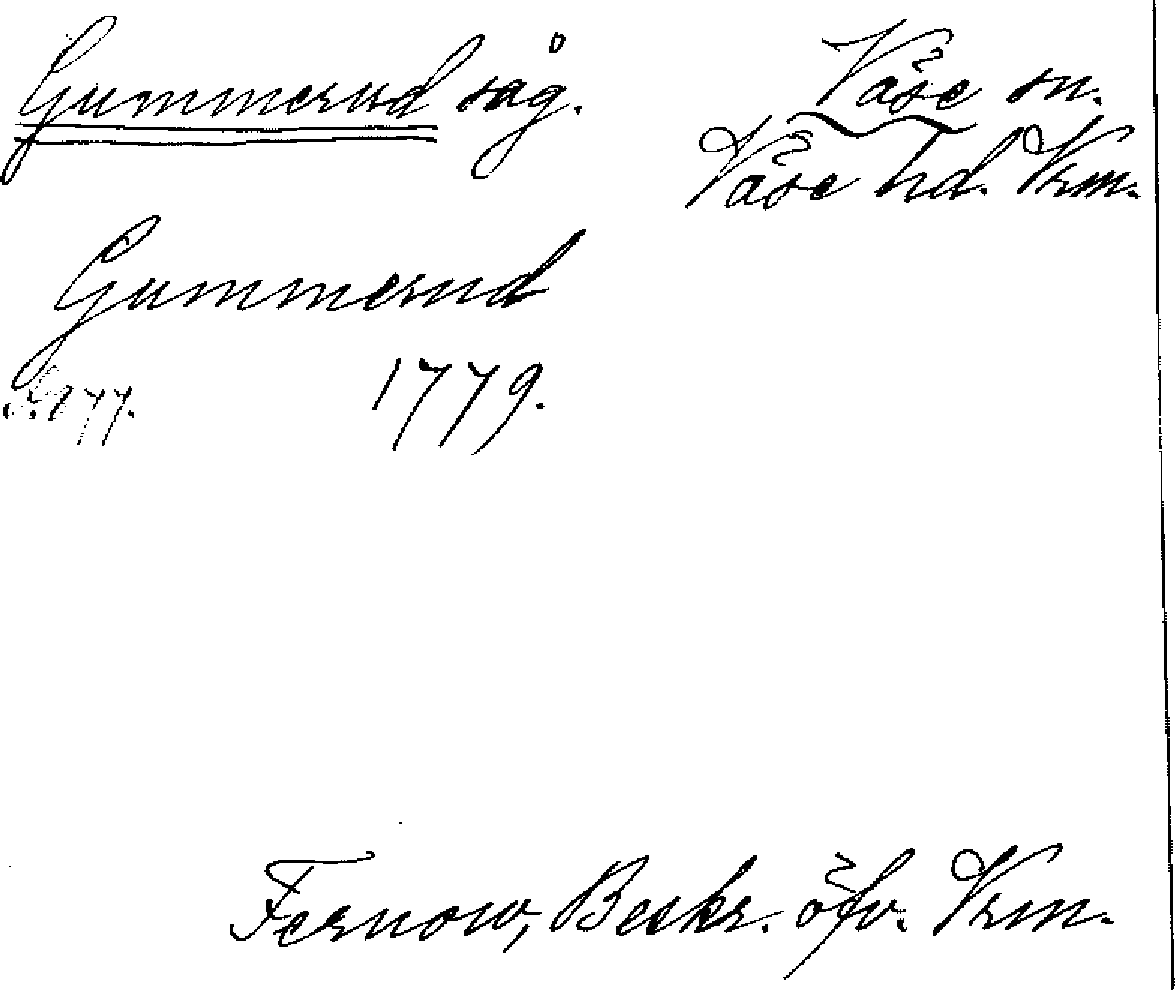 Gummerud såg. Väse sn.
Väse hd. Vrm.
Gummerud
S. 277. 1779.
Fernow, Beskr. öfv. Vrm.